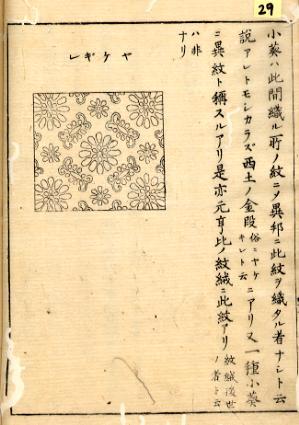 29
小葵ハ此間織ル所ノ紋ニソ異邦ニ此紋ヲ織タル者ナシト云
説アレトモシカラズ西土ノ金段俗ニヤケキレト云ニアリ又一種小葵
ニ異紋ト稱スルアリ是亦元亨比ノ紋絨ニ此紋アリ紋絨後世ノ者ト云
ハ非
ナリ
ヤケギレ